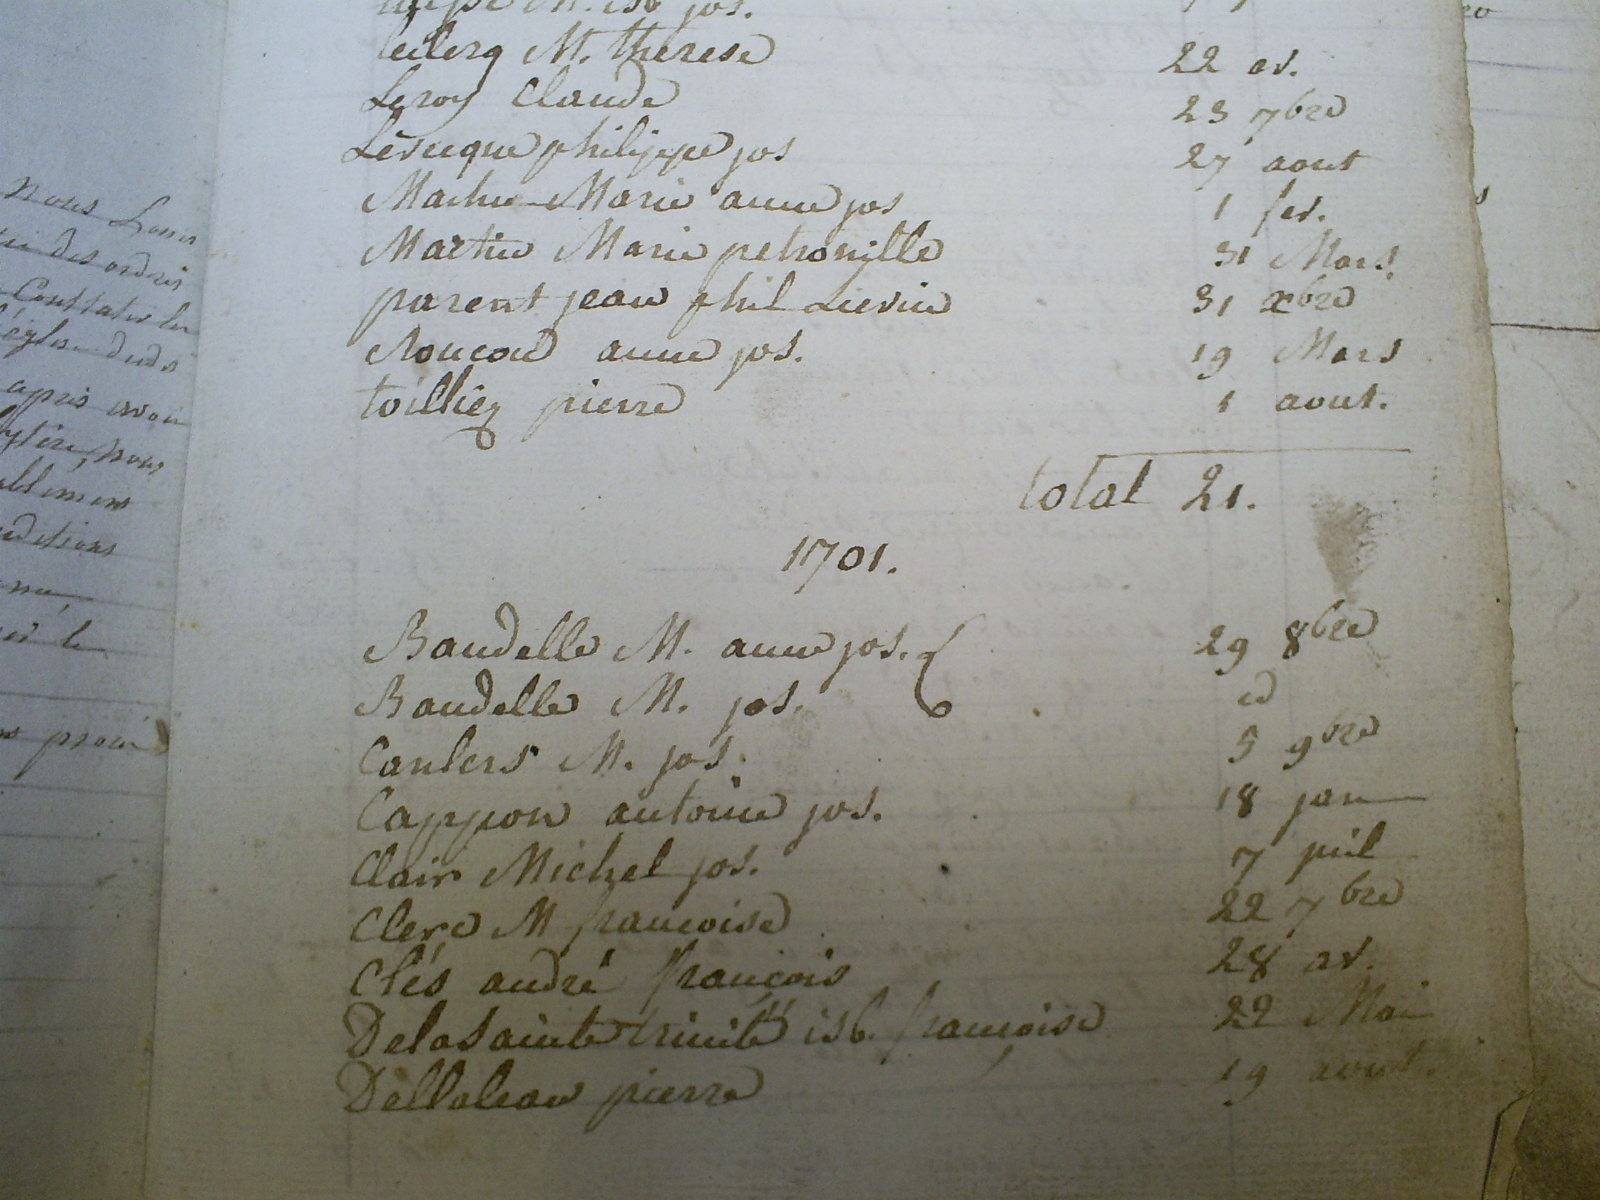 leclerq M. therese 22 av.
Leroy Claude 23 7bre
Lévecque philippe jos 27 aout
Mathu Marie anne jos 1 fev.
Martin Marie petronille 31 Mars.
parent jean phil Lievin 31 xbre
Roucou anne jos. 19 Mars
toilliez pierre 1 aout.
total 21.
1701.
Baudelle M. anne jos. 29 8bre
Baudelle M. jos. id
Canlers M. jos. 5 9bre
Cappon antoine jos. 18 jan
Clair Michel jos. 7 juil
Clerc M françoise 22 7bre
Clés andré françois 28 av.
Delasaintetrinité isb. françoise 22 Mai
Dellaleau pierre 19 aout.
nous
des ordres
Constater les
apres avoir
nous